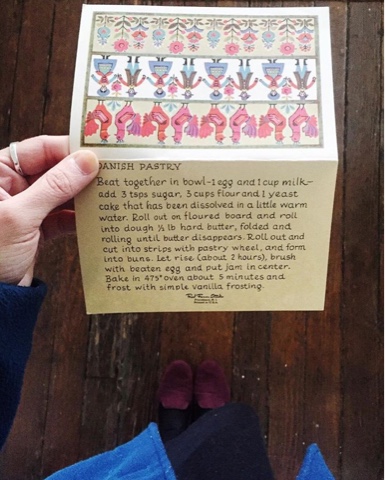 DANISH PASTRY
Beat together in bowl-1 egg and 1 cup milk-
add 3 tsps sugar, 3 cups flour and 1 yeast
cake that has been dissolved in a little warm
water. Roll out on floured board and roll
into dough ½ lb hard butter, folded and
rolling until butter disappears. Roll out and
cut into strips with pastry wheel, and form
into buns. Let rise (about 2 hours), brush
with beaten egg and put jam in center.
Bake in 475° oven about 5 minutes and
frost with simple vanilla frosting.